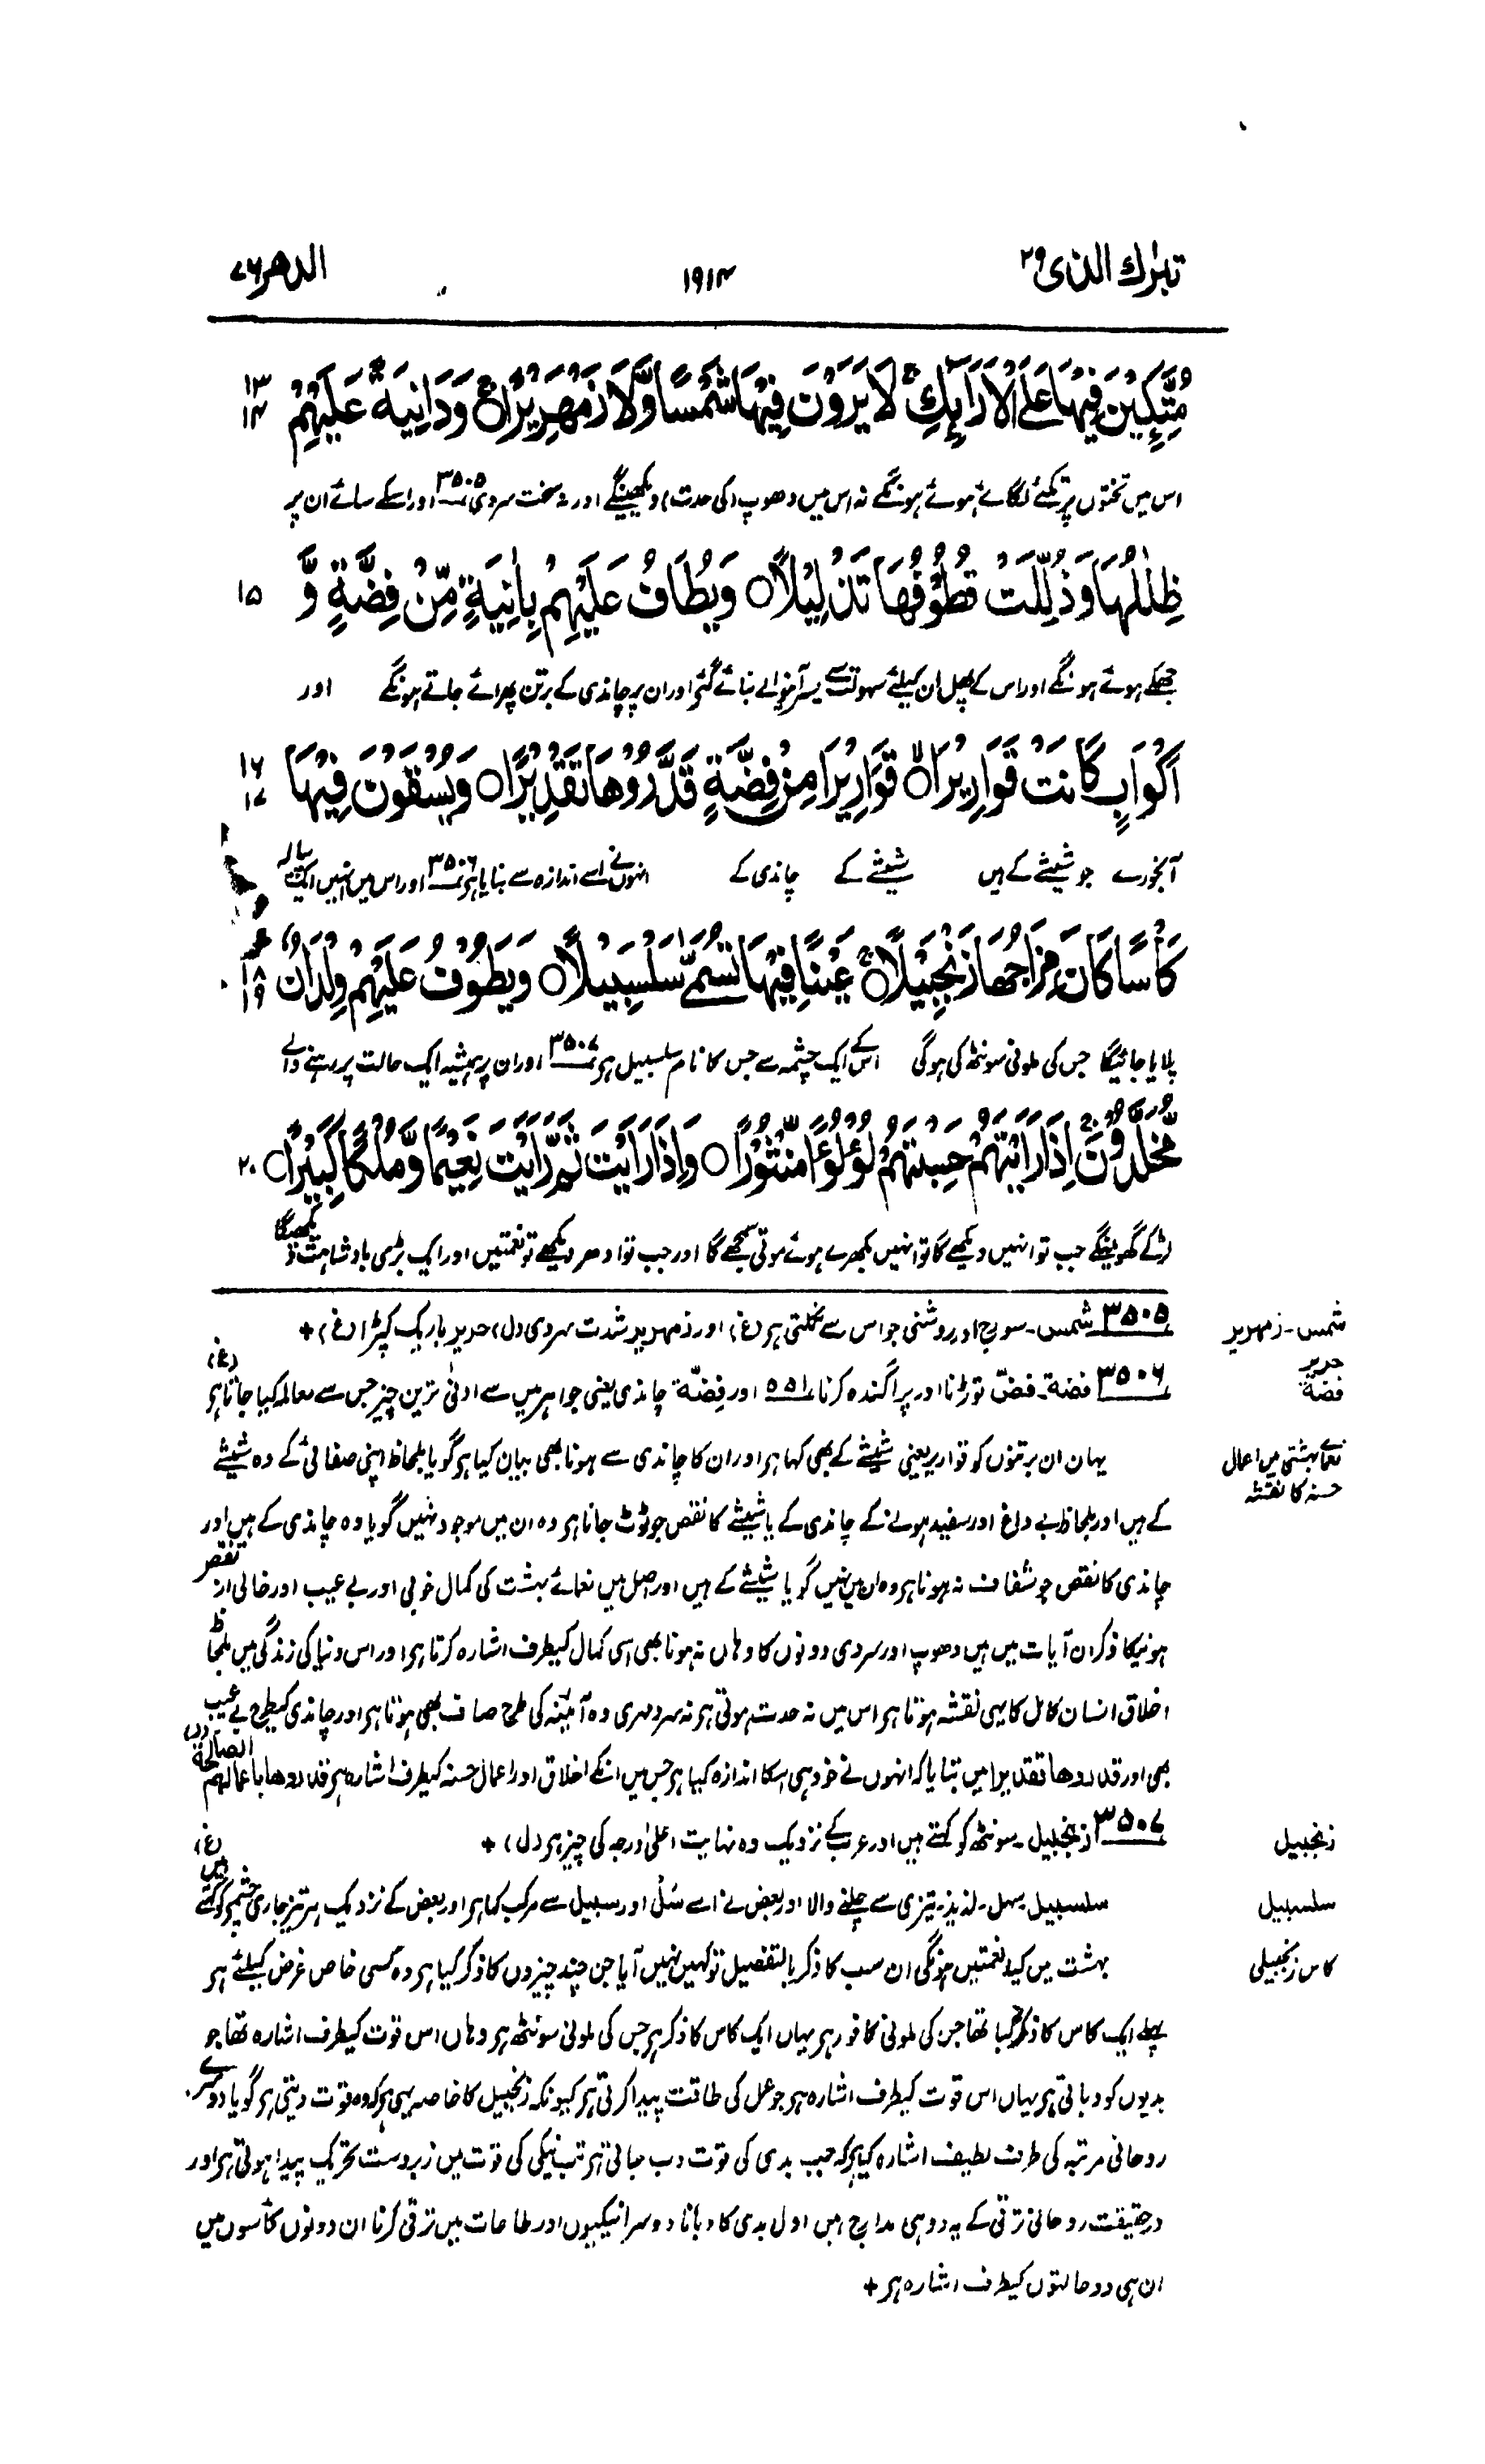 تبٰرك الذى ٢٩
١٩١٤
الدهر ٧٦
مُّتَّكِـِٕيْنَ فِيْهَا عَلَى الْاَرَآىِٕكِ ۚ لَا يَرَوْنَ فِيْهَا شَمْسًا وَّلَا زَمْهَرِيْرًا ۚ وَدَانِيَةً عَلَيْهِمْ
١٣
١٤
اس میں تختوں پر تکئے لگائے ہوئے ہونگے نہ اس میں دھوپ (کی حدت) دیکھینگے اور نہ سخت سردی ۳۵۰۵ اور اسکے سائے ان پر
ظِلٰلُهَا وَذُلِّلَتْ قُطُوْفُهَا تَذْلِيْلًا ○ وَيُطَافُ عَلَيْهِمْ بِاٰنِيَةٍ مِّنْ فِضَّةٍ وَّ
١٥
جھکے ہوئے ہونگے اور اس کے پھل ان کیلئے سہولت سے میسر آنیوالے بنائے گئے اور ان پر چاندی کے برتن پھرائے جاتے ہونگے اور
اَكْوَابٍ كَانَتْ قَوَارِيْرَا۠ ○ قَوَارِيْرَا۠ مِنْ فِضَّةٍ قَدَّرُوْهَا تَقْدِيْرًا ○ وَيُسْقَوْنَ فِيْهَا
١٦
١٧
آبخورے جو شیشے کے ہیں شیشے کے چاندی کے انہوں نے اسے اندازہ سے بنایا ہے ۳۵۰۶ اور اس میں انہیں ایک پیالہ
كَاْسًا كَانَ مِزَاجُهَا زَنْجَبِيْلًا ۚ عَيْنًا فِيْهَا تُسَمّٰى سَلْسَبِيْلًا ○ وَيَطُوْفُ عَلَيْهِمْ وِلْدَانٌ
١٨
١٩
پلایا جائیگا جس کی ملونی سونٹھ کی ہوگی اس کے ایک چشمہ سے جس کا نام سلسبیل ہے ۳۵۰۷ اور ان پر ہمیشہ ایک حالت پر رہنے والے
مُّخَلَّدُوْنَ ۚ اِذَا رَاَيْتَهُمْ حَسِبْتَهُمْ لُؤْلُؤًا مَّنْثُوْرًا ○ وَاِذَا رَاَيْتَ ثَمَّ رَاَيْتَ نَعِيْمًا وَّمُلْكًا كَبِيْرًا ○
٢٠
لڑکے گھومینگے جب تو انہیں دیکھے گا تو انہیں بکھرے ہوئے موتی سمجھے گا اور جب تو ادھر دیکھے تو نعمتیں اور ایک بڑی بادشاہت دیکھیگا
شمس - زمہریر
۳۵۰۵ شمس - سورج اور روشنی جو اس سے نکلتی ہے (غ) اور زمہریر شدت سردی (ل) حریر باریک کپڑا (غ) +
حریر
فضة
۳۵۰۶ فضة - فضّ توڑنا اور پراگندہ کرنا ۵۵۱ اور فِضّة چاندی یعنی جواہر میں سے ادنیٰ ترین چیز جس سے معاملہ کیا جاتا ہے (غ)
نعمائے بہشتی میں اعمال
حسنہ کا نقشہ
یہاں ان برتنوں کو قواریر یعنی شیشے کے بھی کہا ہے اور ان کا چاندی سے ہونا بھی بیان کیا ہے گویا بلحاظ اپنی صفائی کے وہ شیشے
کے ہیں اور بلحاظ بے داغ اور سفید ہونے کے چاندی کے یا شیشے کا نقص جو ٹوٹ جانا ہے وہ ان میں موجود نہیں گویا وہ چاندی کے ہیں اور
چاندی کا نقص جو شفاف نہ ہونا ہے وہ ان میں نہیں گویا شیشے کے ہیں اور اصل میں نعمائے بہشت کی کمال خوبی اور بے عیب اور خالی از نقص
ہونیکا ذکر ان آیات میں ہیں دھوپ اور سردی دونوں کا وہاں نہ ہونا بھی اسی کمال کیطرف اشارہ کرتا ہے اور اس دنیا کی زندگی میں بلحاظ
اخلاق انسان کامل کا یہی نقشہ ہوتا ہے اس میں نہ حدت ہوتی ہے نہ سردمہری وہ آئینہ کی طرح صاف بھی ہوتا ہے اور چاندی کیطرح بے عیب
بھی اور قدروھا تقدیرا میں بتایا کہ انہوں نے خود ہی اسکا اندازہ کیا ہے جس میں انکے اخلاق اور اعمال حسنہ کیطرف اشارہ ہے قدروھا باعمالھم الصالحة (ر)
زنجبیل
۳۵۰۷ زنجبیل - سونٹھ کو کہتے ہیں اور عرب کے نزدیک وہ نہایت اعلیٰ درجہ کی چیز ہے (ل) +
سلسبیل
سلسبیل - سہل - لذیذ - تیزی سے چلنے والا اور بعض نے اسے سَلْ اور سبیل سے مرکب کہا ہے اور بعض کے نزدیک ہر تیز جاری چشمہ کو کہتے ہیں (غ)
کاس زنجبیلی
بہشت میں کیا نعمتیں ہونگی ان سب کا ذکر بالتفصیل تو کہیں نہیں آیا جن چند چیزوں کا ذکر کیا ہے وہ کسی خاص غرض کیلئے ہے
پہلے ایک کاس کا ذکر کیا تھا جن کی ملونی کافور ہے یہاں ایک کاس کا ذکر ہے جس کی ملونی سونٹھ ہے وہاں اس قوت کیطرف اشارہ تھا جو
بدیوں کو دباتی ہے یہاں اس قوت کیطرف اشارہ ہے جو عمل کی طاقت پیدا کرتی ہے کیونکہ زنجبیل کا خاصہ یہی ہے کہ وہ قوت دیتی ہے گویا دوسرے
روحانی مرتبہ کی طرف لطیف اشارہ کیا ہے کہ جب بدی کی قوت دب جاتی ہے تب نیکی کی قوت میں زبردست تحریک پیدا ہوتی ہے اور
درحقیقت روحانی ترقی کے یہ دو ہی مدارج ہیں اول بدی کا دبانا دوسرا نیکیوں اور طاعات میں ترقی کرنا ان دونوں کاسوں میں
ان ہی دو حالتوں کیطرف اشارہ ہے +